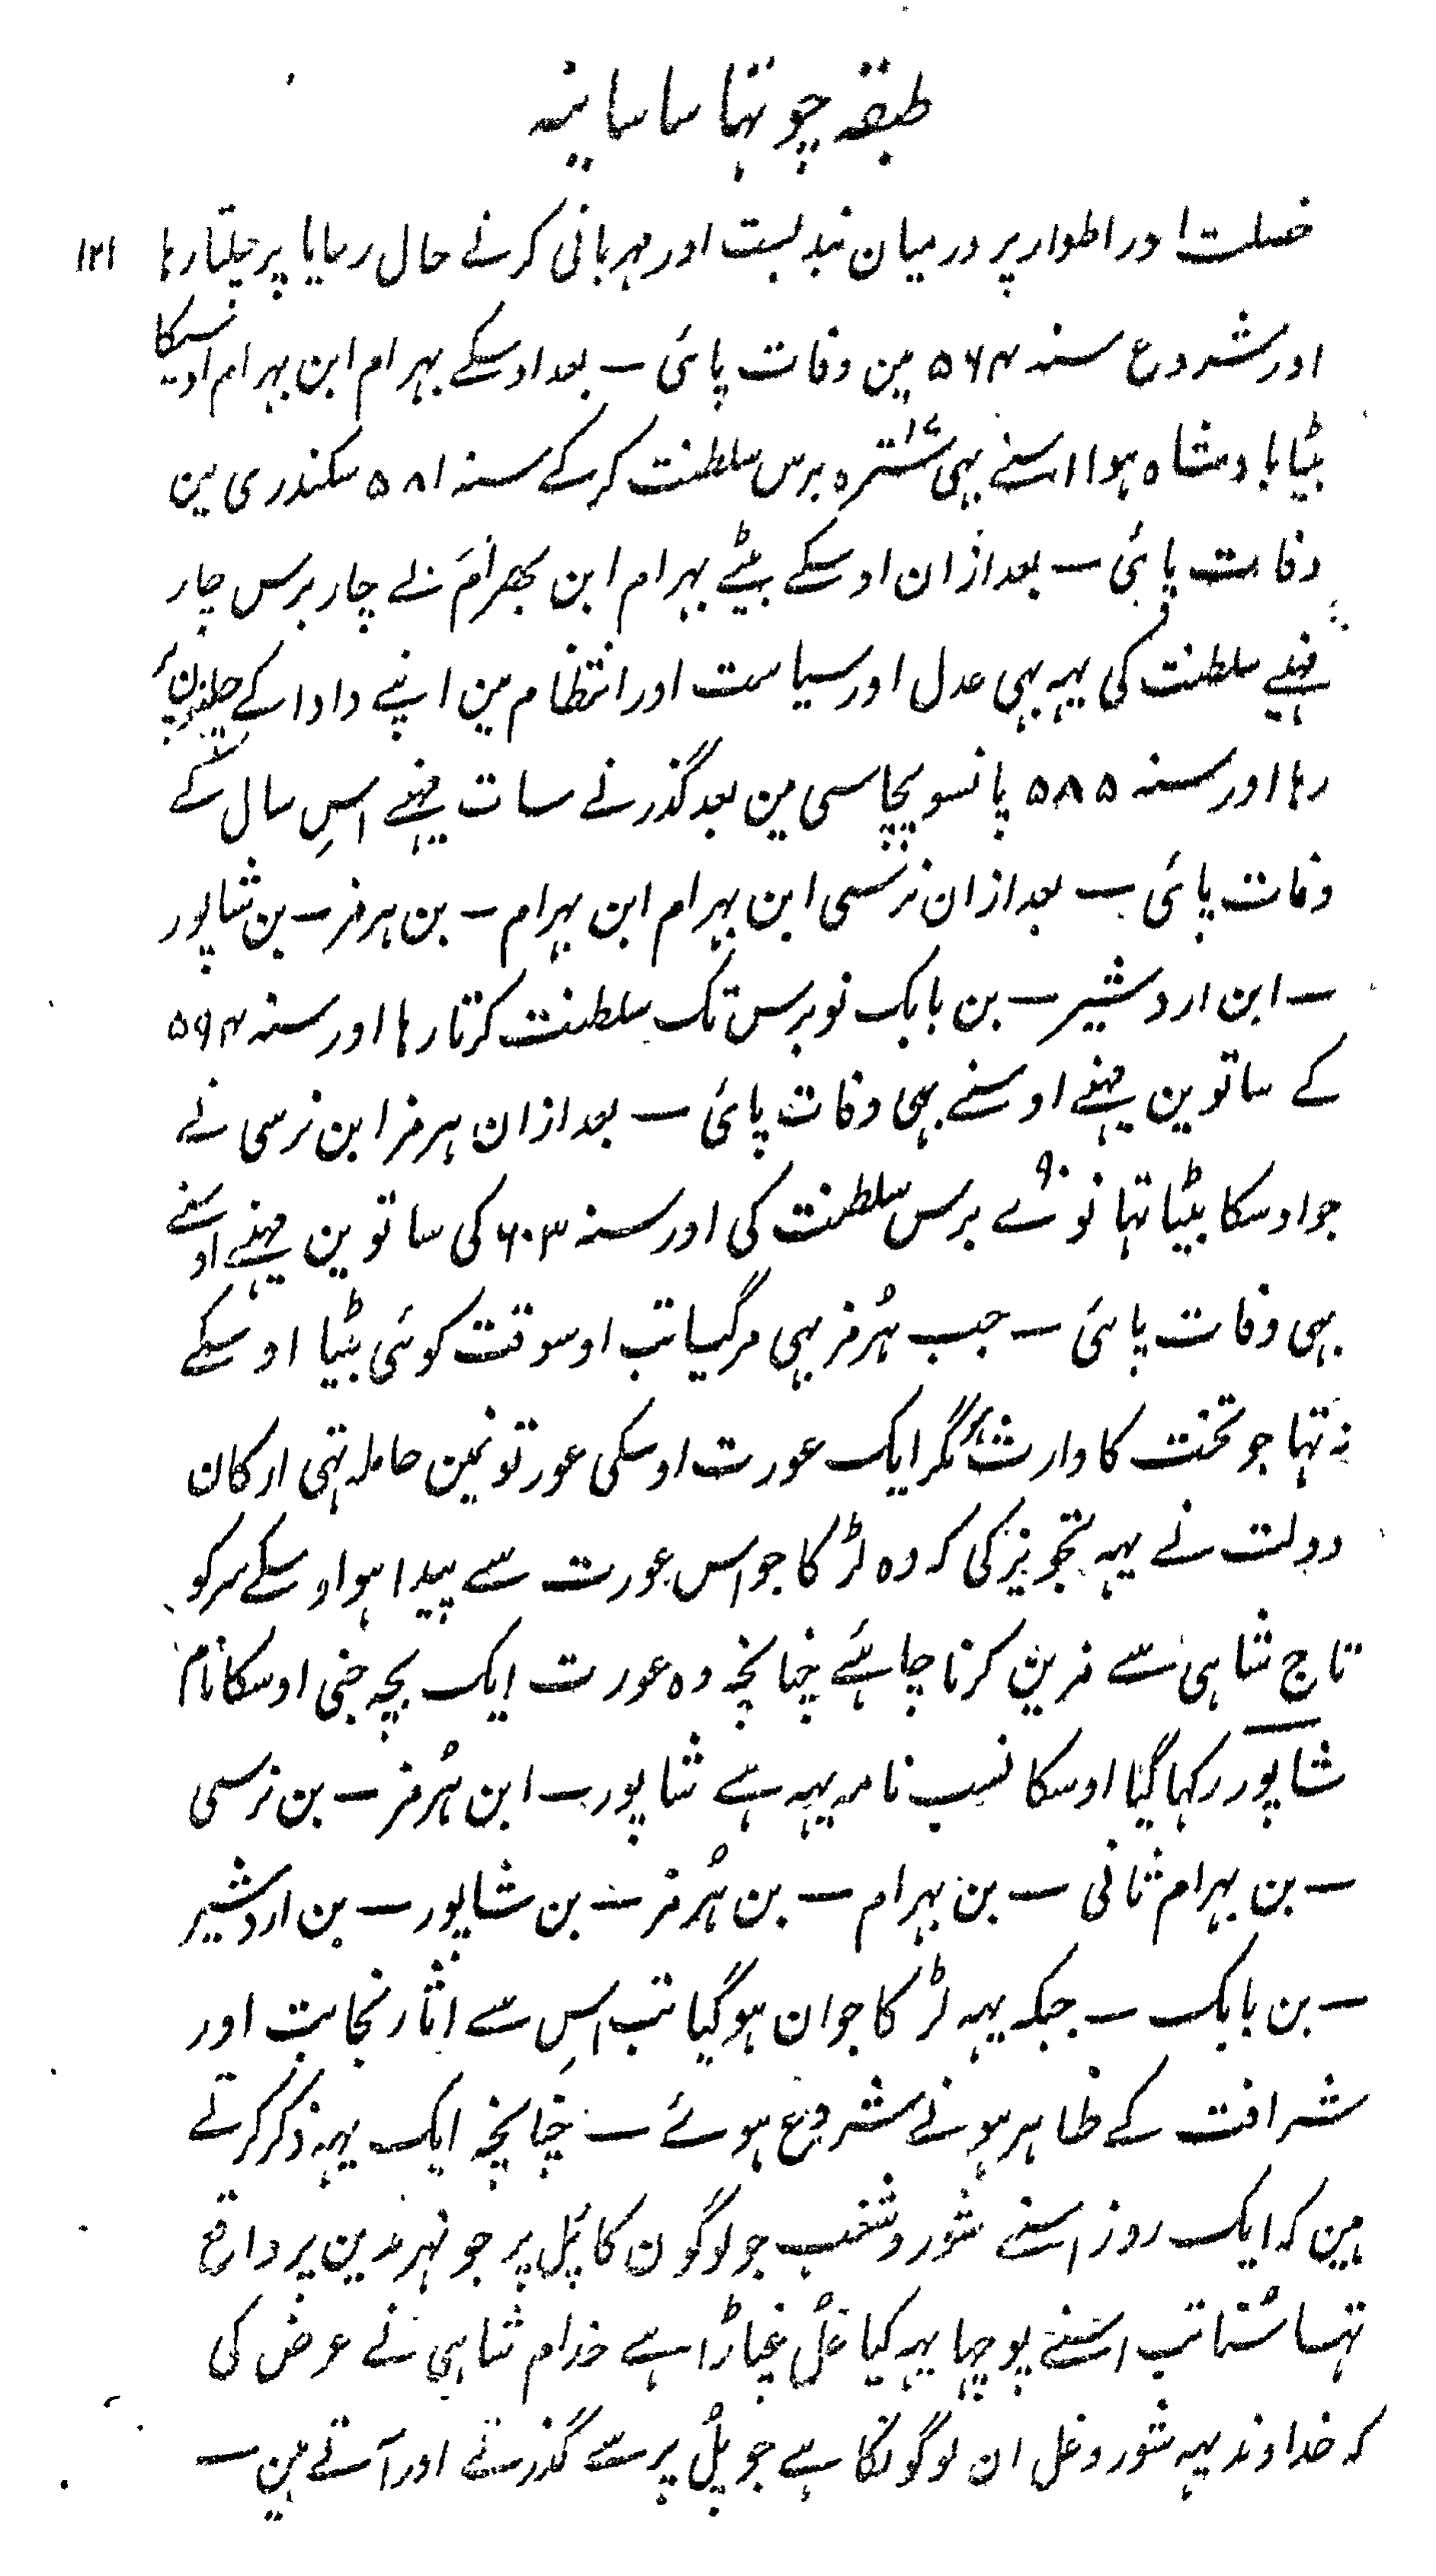 طبقہ چوتہا ساسانیہ
خصلت اور اطوار پر درمیان بندبست اور مہربانی کرنے حال رعایا پر چلتا رہا ۱۲۱
اور شروع سنہ ۵۶۴ مین وفات پائی ۔ بعد اوسکے بہرام ابن بہرام اوسیکا
بیٹا بادشاہ ہوا اسنے بہی سترہ ۱۷ برس سلطنت کر کے سنہ ۵۸۱ سکندری مین
وفات پائی ۔ بعد ازان اوسکے بیٹے بہرام ابن بھرام نے چار برس چار
مہینے سلطنت کی یہہ بہی عدل اور سیاست اور انتظام مین اپنے دادا کے چلن پر
رہا اور سنہ ۵۸۵ پانسو پچاسی مین بعد گذرنے سات مہینے اسِ سال کے
وفات پائی ۔ بعد ازان نرسی ابن بہرام ابن بہرام ۔ بن ہرمز ۔ بن شاپور
۔ ابن اردشیر ۔ بن بابک نو برس تک سلطنت کرتا رہا اور سنہ ۵۹۴
کے ساتوین مہینے اوسنے بہی وفات پائی ۔ بعد ازان ہرمز ابن نرسی نے
جو اوسکا بیٹا تہا نوے ۹۰ برس سلطنت کی اور سنہ ۶۰۳ کی ساتوین مہینے اوسنے
بہی وفات پائی ۔ جب ہُرمز بہی مر گیا تب اوسوقت کوئی بیٹا اوسکے
نہ تہا جو تخت کا وارث ہو مگر ایک عورت اوسکی عورتونمین حاملہ تہی ارکان
دولت نے یہہ تجویز کی کہ وہ لڑکا جو اس عورت سے پیدا ہو اوسکے سر کو
تاج شاہی سے مزین کرنا چاہئے چنانچہ وہ عورت ایک بچہ جنی اوسکا نام
شاپور رکہا گیا اوسکا نسب نامہ یہہ ہے شاپور ۔ ابن ہُرمز ۔ بن نرسی
۔ بن بہرام ثانی ۔ بن بہرام ۔ بن ہُرمز ۔ بن شاپور ۔ بن اردشیر
۔ بن بابک ۔ جبکہ یہہ لڑکا جوان ہو گیا تب اسِ سے اثار نجابت اور
شرافت کے ظاہر ہونے شروع ہوئے ۔ چنانچہ ایک یہہ ذکر کرتے
ہین کہ ایک روز اسنے شور و شغب جو لوگون کا پُل پر جو نہر مدین پر واقع
تہا سُنا تب اسنے پوچہا یہہ کیا غُل غپاڑا ہے خدام شاہی نے عرض کی
کہ خداوند یہہ شور و غل ان لوگونکا ہے جو پُل پر سے گذرتے اور آتے ہین ۔